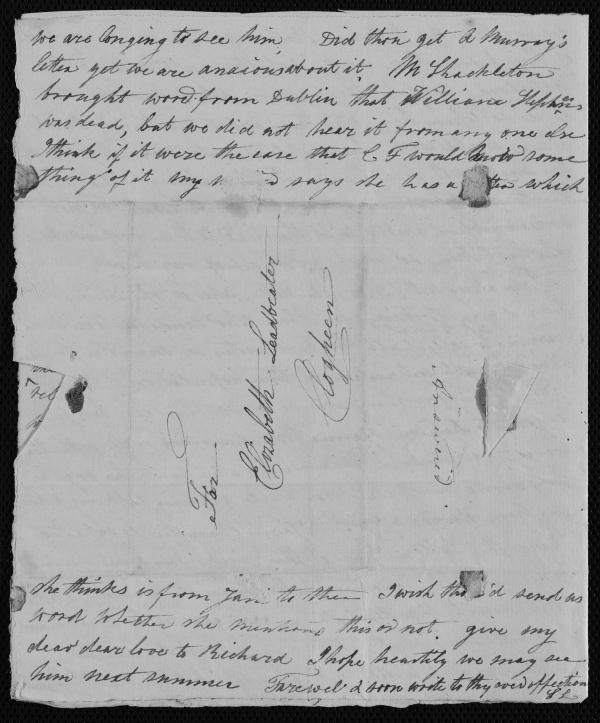 we are longing to see him Did thou get A Murray's
letter yet we are anxious about it M Shackleton
brought word from Dublin that William Stephens
was dead, but we did not hear it from any one else
I think if it were the case that C F would know some
thing of it my says she has a which
For
Elizabeth Leadbeater
Clogheen
she thinks is from Jane to thee I wish thou'd send us
word whether she mentions this or not. give my
dear dear love to Richard I hope heartily we may see
him next summer Farewel & soon write to thy ever affection
S L